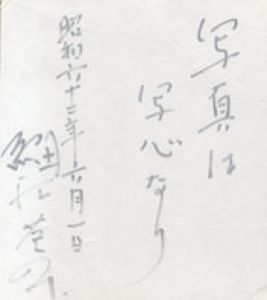 写真は
写心なり
昭和六十三年六月一日